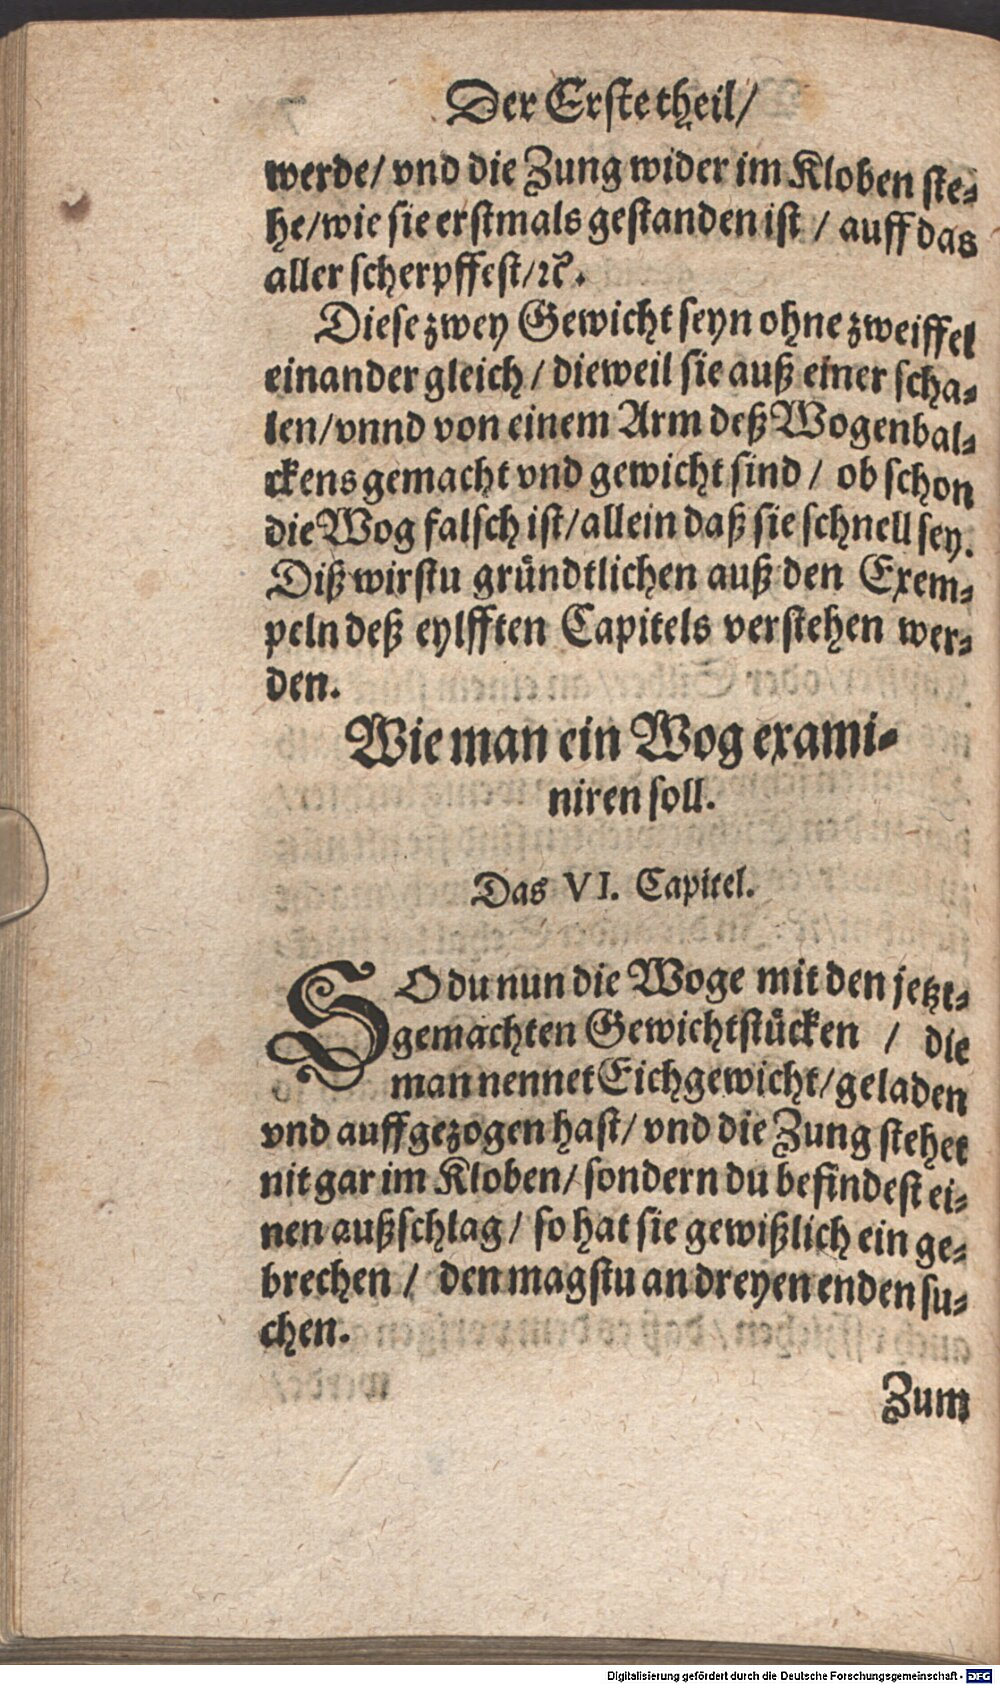 Der Erste theil/
werde/ vnd die Zung wider im Kloben ste⸗
he/wie sie erstmals gestanden ist / auff das
aller scherpffest/ꝛc̃.
Diese zwey Gewicht seyn ohne zweiffel
einander gleich / dieweil sie auß einer scha⸗
len/vnnd von einem Arm deß Wogenbal⸗
ckens gemacht vnd gewicht sind / ob schon
die Wog falsch ist/allein daß sie schnell sey.
Diß wirstu gründtlichen auß den Exem⸗
peln deß eylfften Capitels verstehen wer⸗
den.
Wie man ein Wog exami⸗
niren soll.
Das VI. Capitel.
SO du nun die Woge mit den jetzt⸗
gemachten Gewichtstücken / die
man nennet Eichgewicht/geladen
vnd auffgezogen hast/ vnd die Zung stehet
nit gar im Kloben/ sondern du befindest ei⸗
nen außschlag / so hat sie gewißlich ein ge⸗
brechen / den magstu an dreyen enden su⸗
chen.
Zum
Digitalisierung gefördert durch die Deutsche Forschungsgemeinschaft - DFG